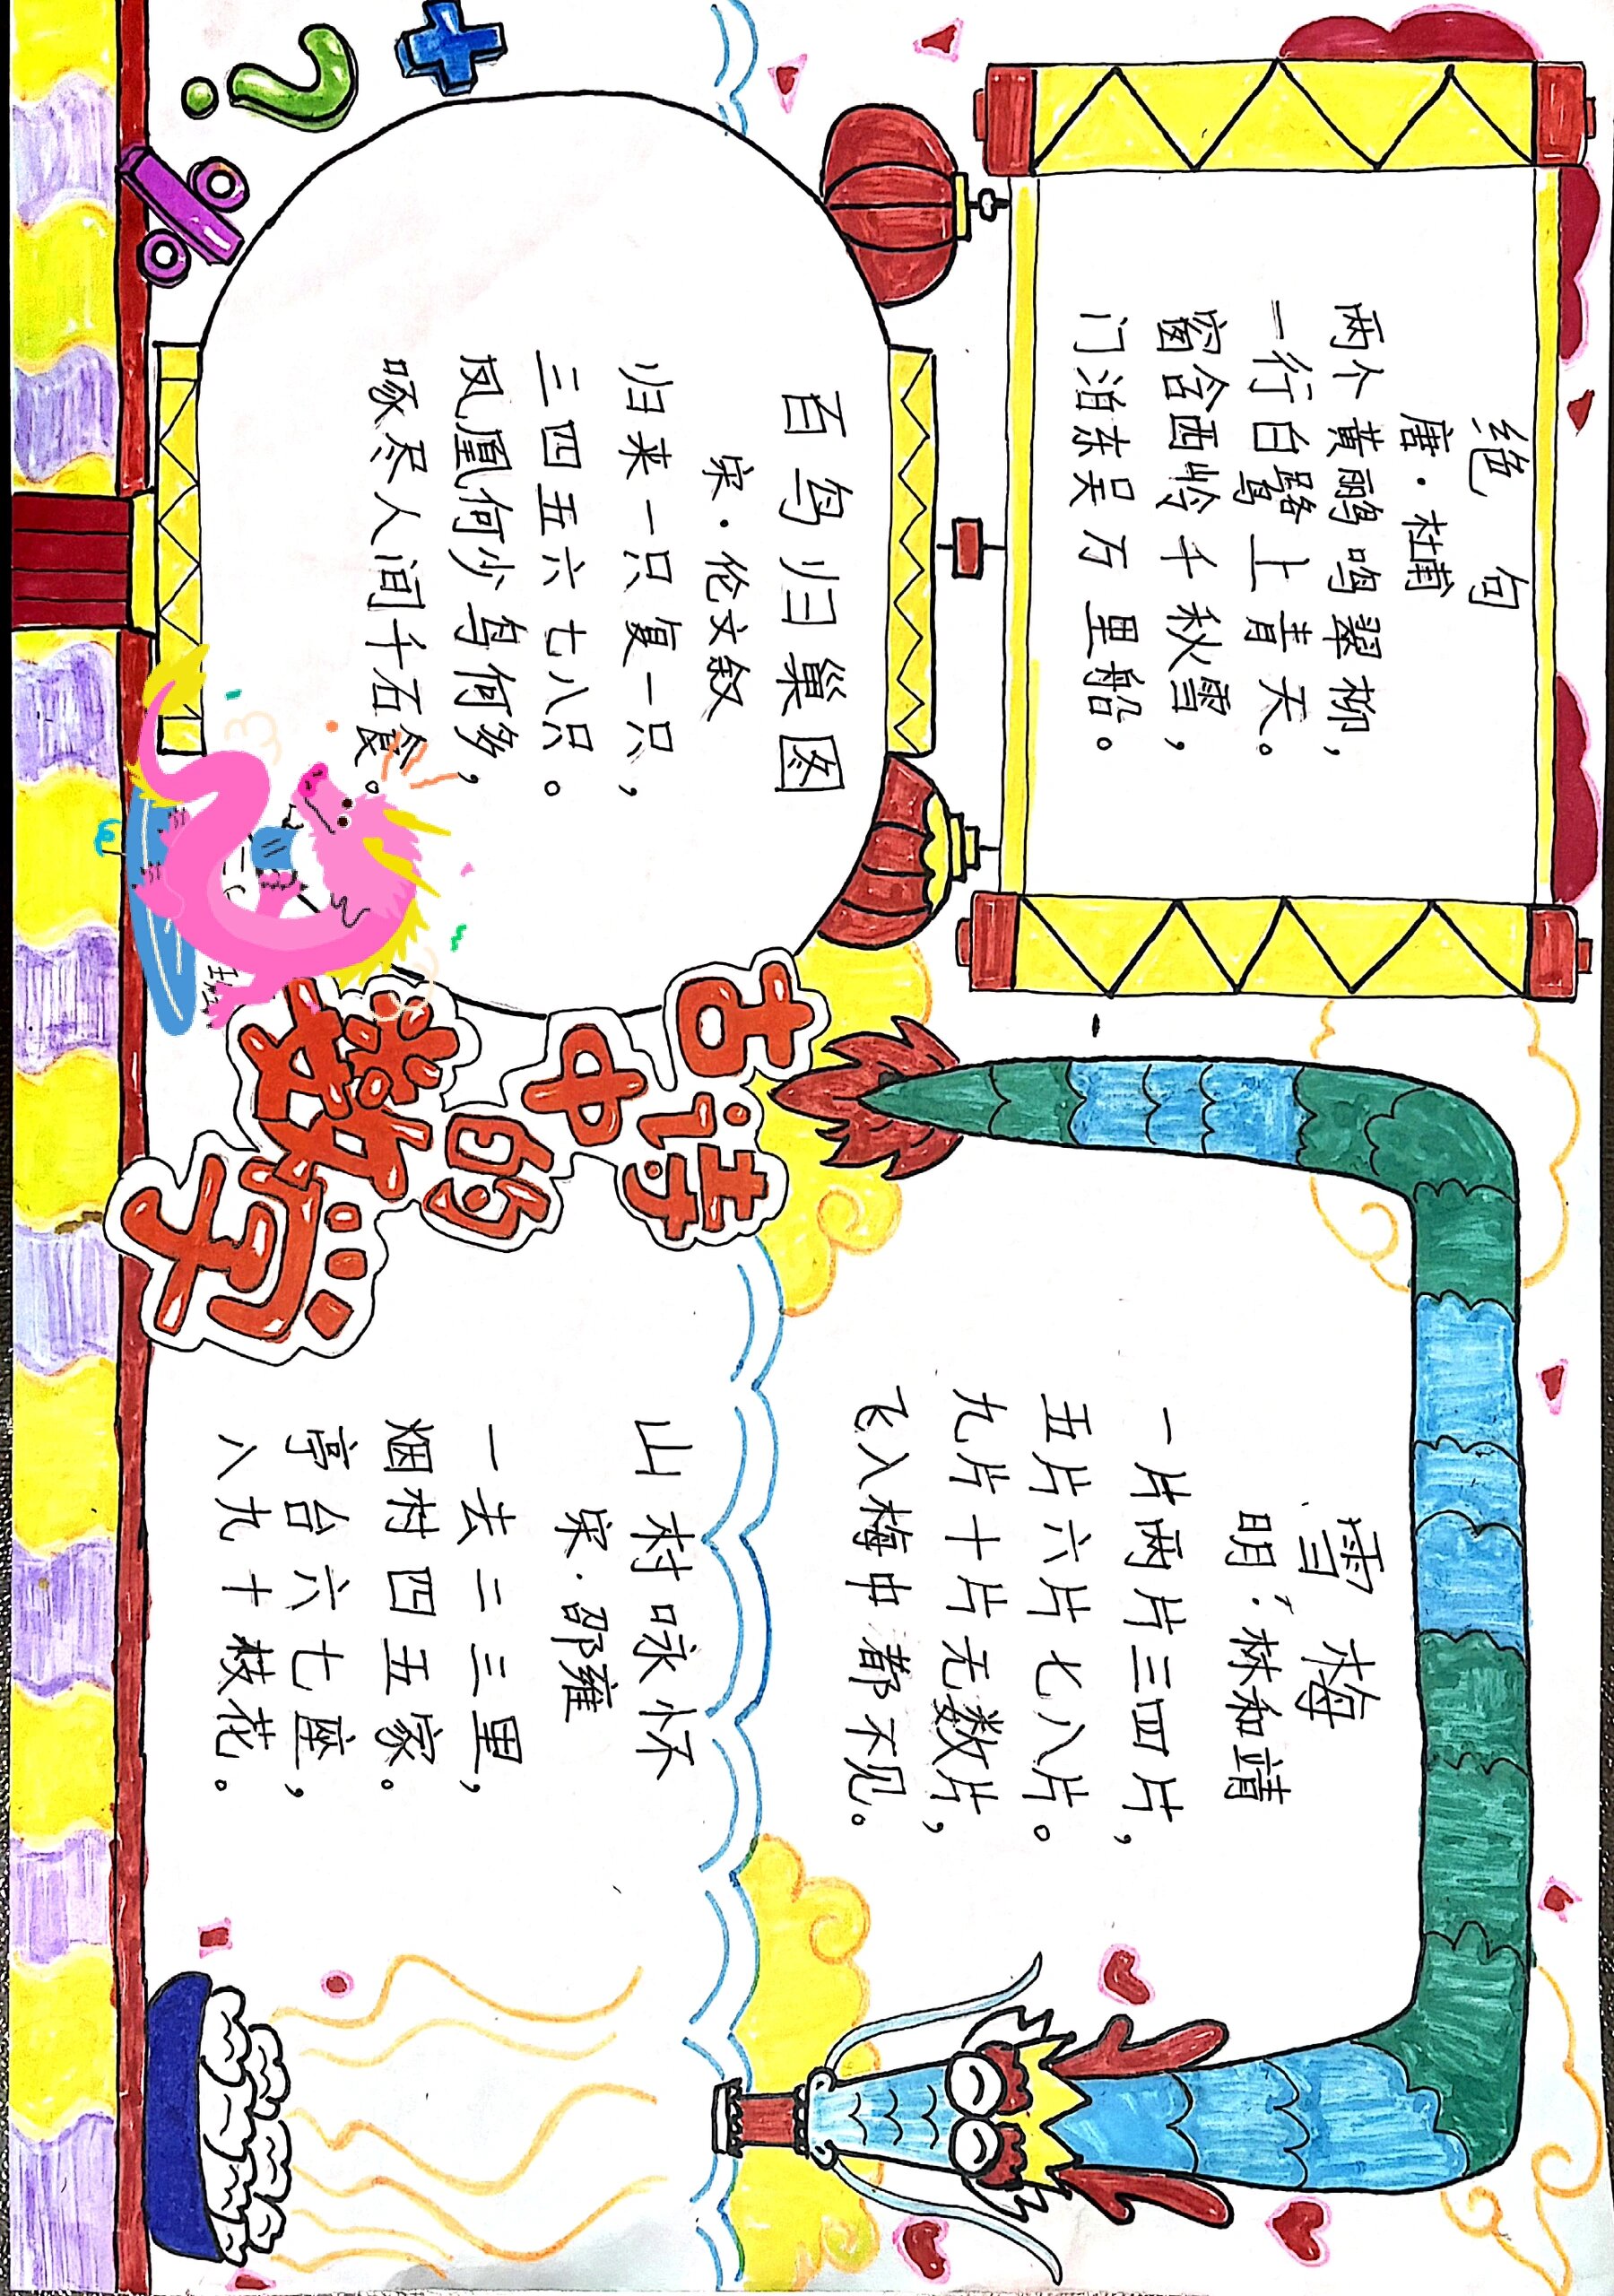 绝句
唐·杜甫
两个黄鹂鸣翠柳，
一行白鹭上青天。
窗含西岭千秋雪，
门泊东吴万里船。
雪梅
明：林和靖
一片两片三四片，
五片六片七八片。
九片十片无数片，
飞入梅中都不见。
古诗
中的
数学
百鸟归巢图
宋·伦文叙
归来一只复一只，
三四五六七八只。
凤凰何少鸟何多，
啄尽人间千石食。
山村咏怀
宋·邵雍
一去二三里，
烟村四五家。
亭台六七座，
八九十枝花。